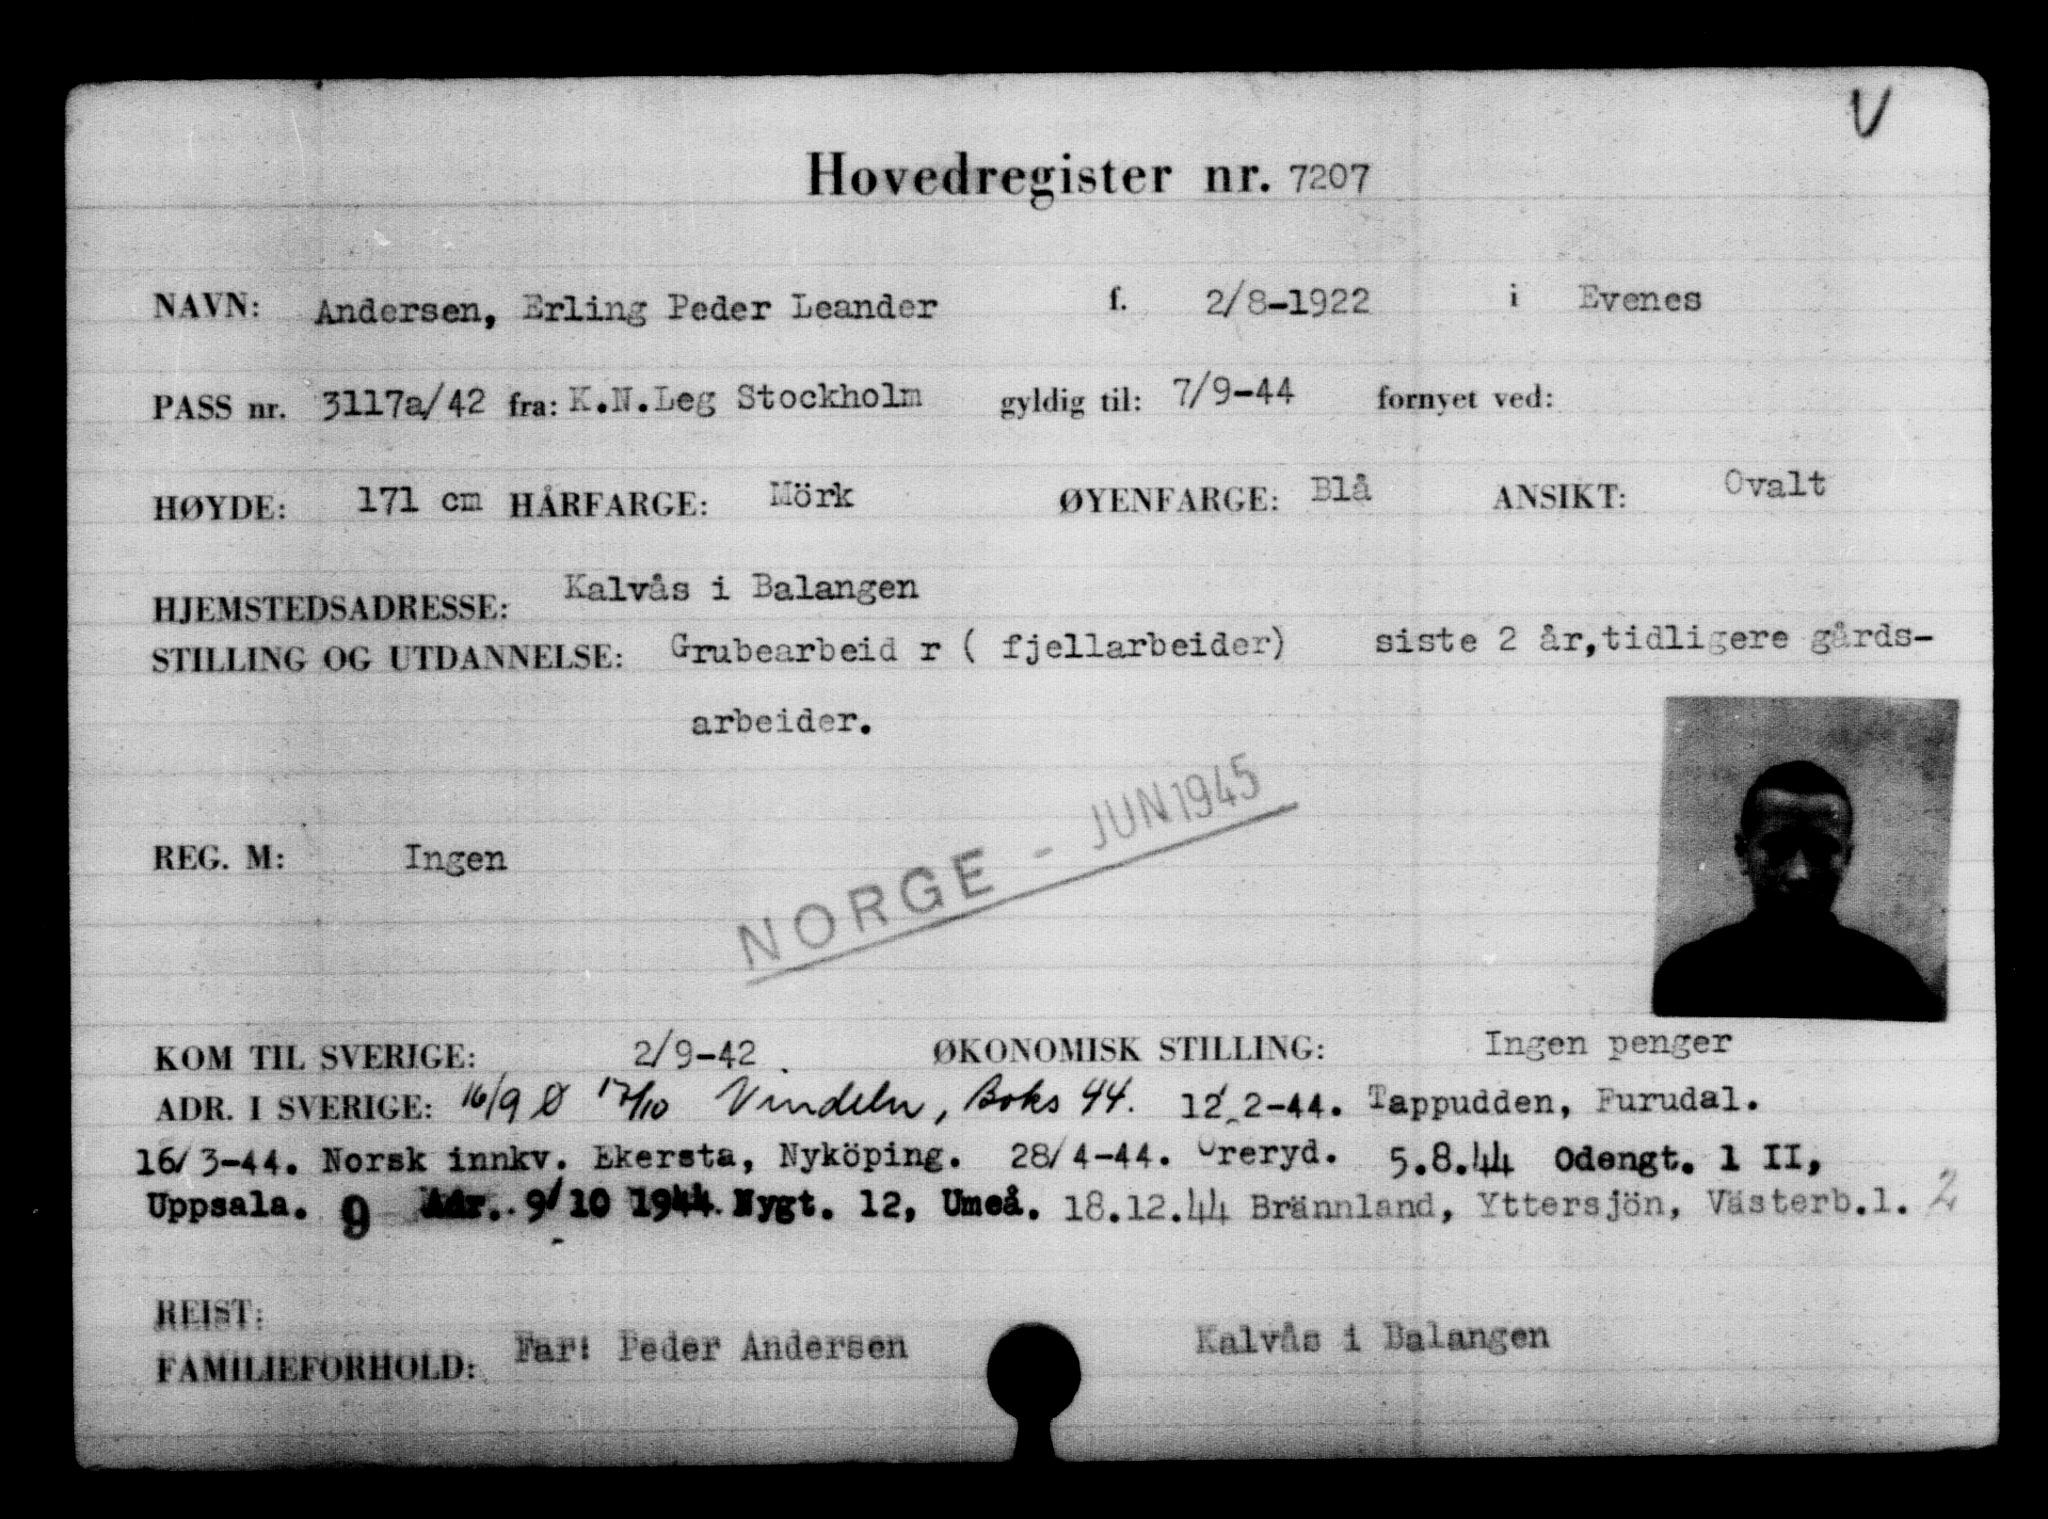 V
Hovedregister nr. 7207
NAVN: Andersen, Erling Peder Leander f. 2/8-1922 i Evenes
PASS nr. 3117a/42 fra: K.N.Leg Stockholm gyldig til: 7/9-44 fornyet ved:
HØYDE: 171 cm HÅRFARGE: Mörk ØYENFARGE: Blå ANSIKT: Ovalt
HJEMSTEDSADRESSE: Kalvås i Balangen
STILLING OG UTDANNELSE: Grubearbeid r ( fjellarbeider) siste 2 år,tidligere gårds-
arbeider.
NORGE - JUN 1945
REG. M: Ingen
KOM TIL SVERIGE: 2/9-42. ØKONOMISK STILLING: Ingen penger
ADR. I SVERIGE: 16/9 Ø 17/10 Vindeln, Boks 44. 12/2-44. Tappudden, Furudal.
16/3-44. Norsk innkv. Ekersta, Nyköping. 28/4-44. Öreryd. 5.8.44 Odengt. 1 II,
Uppsala. 9 Adr. 9/10 1944 Nygt. 12, Umeå. 18.12.44 Brännland, Yttersjön, Västerb.l. 2
REIST:
FAMILIEFORHOLD: Far: Peder Andersen Kalvås i Balangen